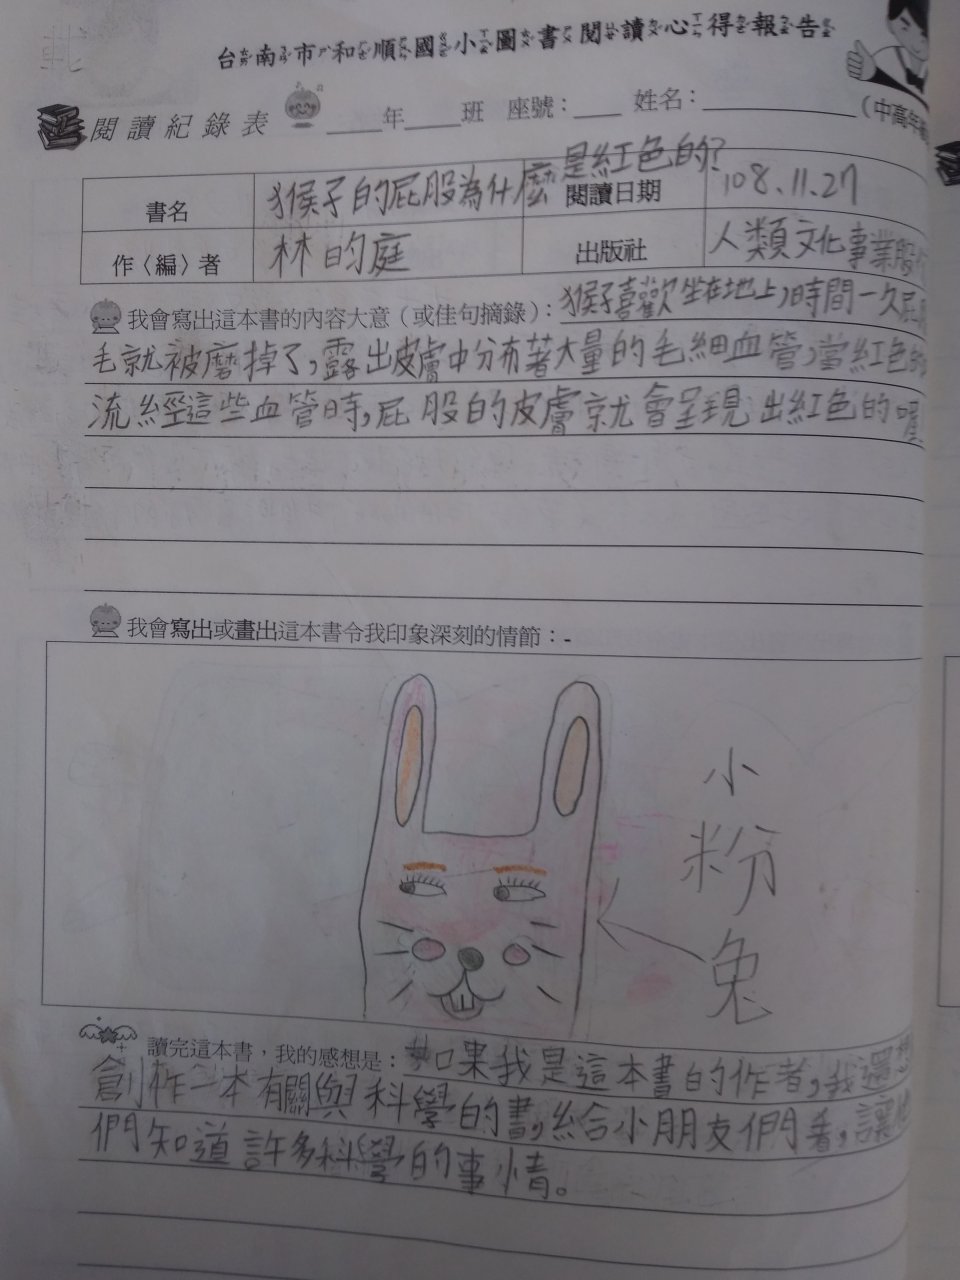 台南市和順國小圖書閱讀心得報告
閱讀紀錄表 ____年____班 座號：____ 姓名：________ (中高年
書名 猴子的屁股為什麼是紅色的? 閱讀日期 108.11.27
作〈編〉者 林昀庭 出版社 人類文化事業股
我會寫出這本書的內容大意（或佳句摘錄）：猴子喜歡坐在地上，時間一久屁
毛就被磨掉了，露出皮膚中分布著大量的毛細血管，當紅色的
流經這些血管時，屁股的皮膚就會呈現出紅色的喔
我會寫出或畫出這本書令我印象深刻的情節：-
小粉兔
讀完這本書，我的感想是：如果我是這本書的作者，我還想
創作一本有關與科學的書，給小朋友們看，讓他
們知道許多科學的事情。